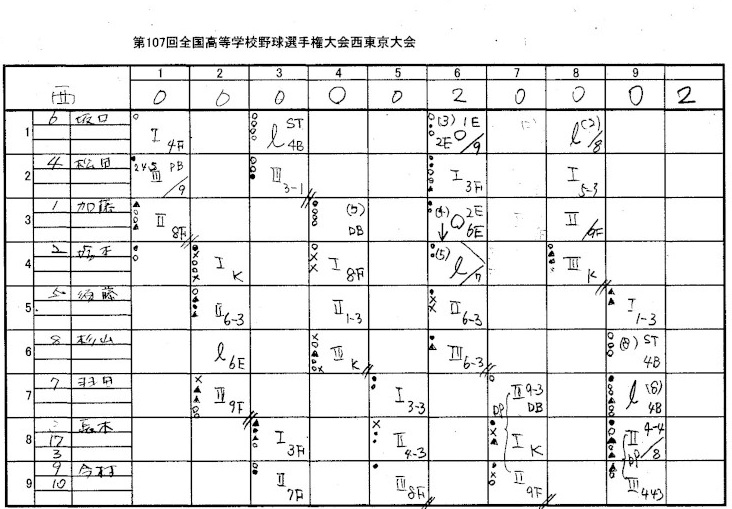 第107回全国高等学校野球選手権大会西東京大会
1 2 3 4 5 6 7 8 9
0 0 0 0 0 2 0 0 0 2
1 6 坂口 I 4F l ST 4B (3) 1E 2E 0/9 l (2) /8
2 4 松田 III PB /9 III 3-1 I 3F I 5-3
3 1 加藤 II 8F (5) DB (4) 0 2E 6E II
4 2 I K I 8F (5) l/7 III K
5 5 須藤 II 6-3 II 1-3 II 6-3 I 1-3
6 8 杉山 l 6E III K III 6-3 (8) ST 4B
7 7 羽田 III 9F I 3-3 DP III 9-3 DB l (6) 4B
8 17 3 I 3F II 4-3 I K II 4-4 DP /8
9 9 今村 10 II 7F III 8F II 9F III 443